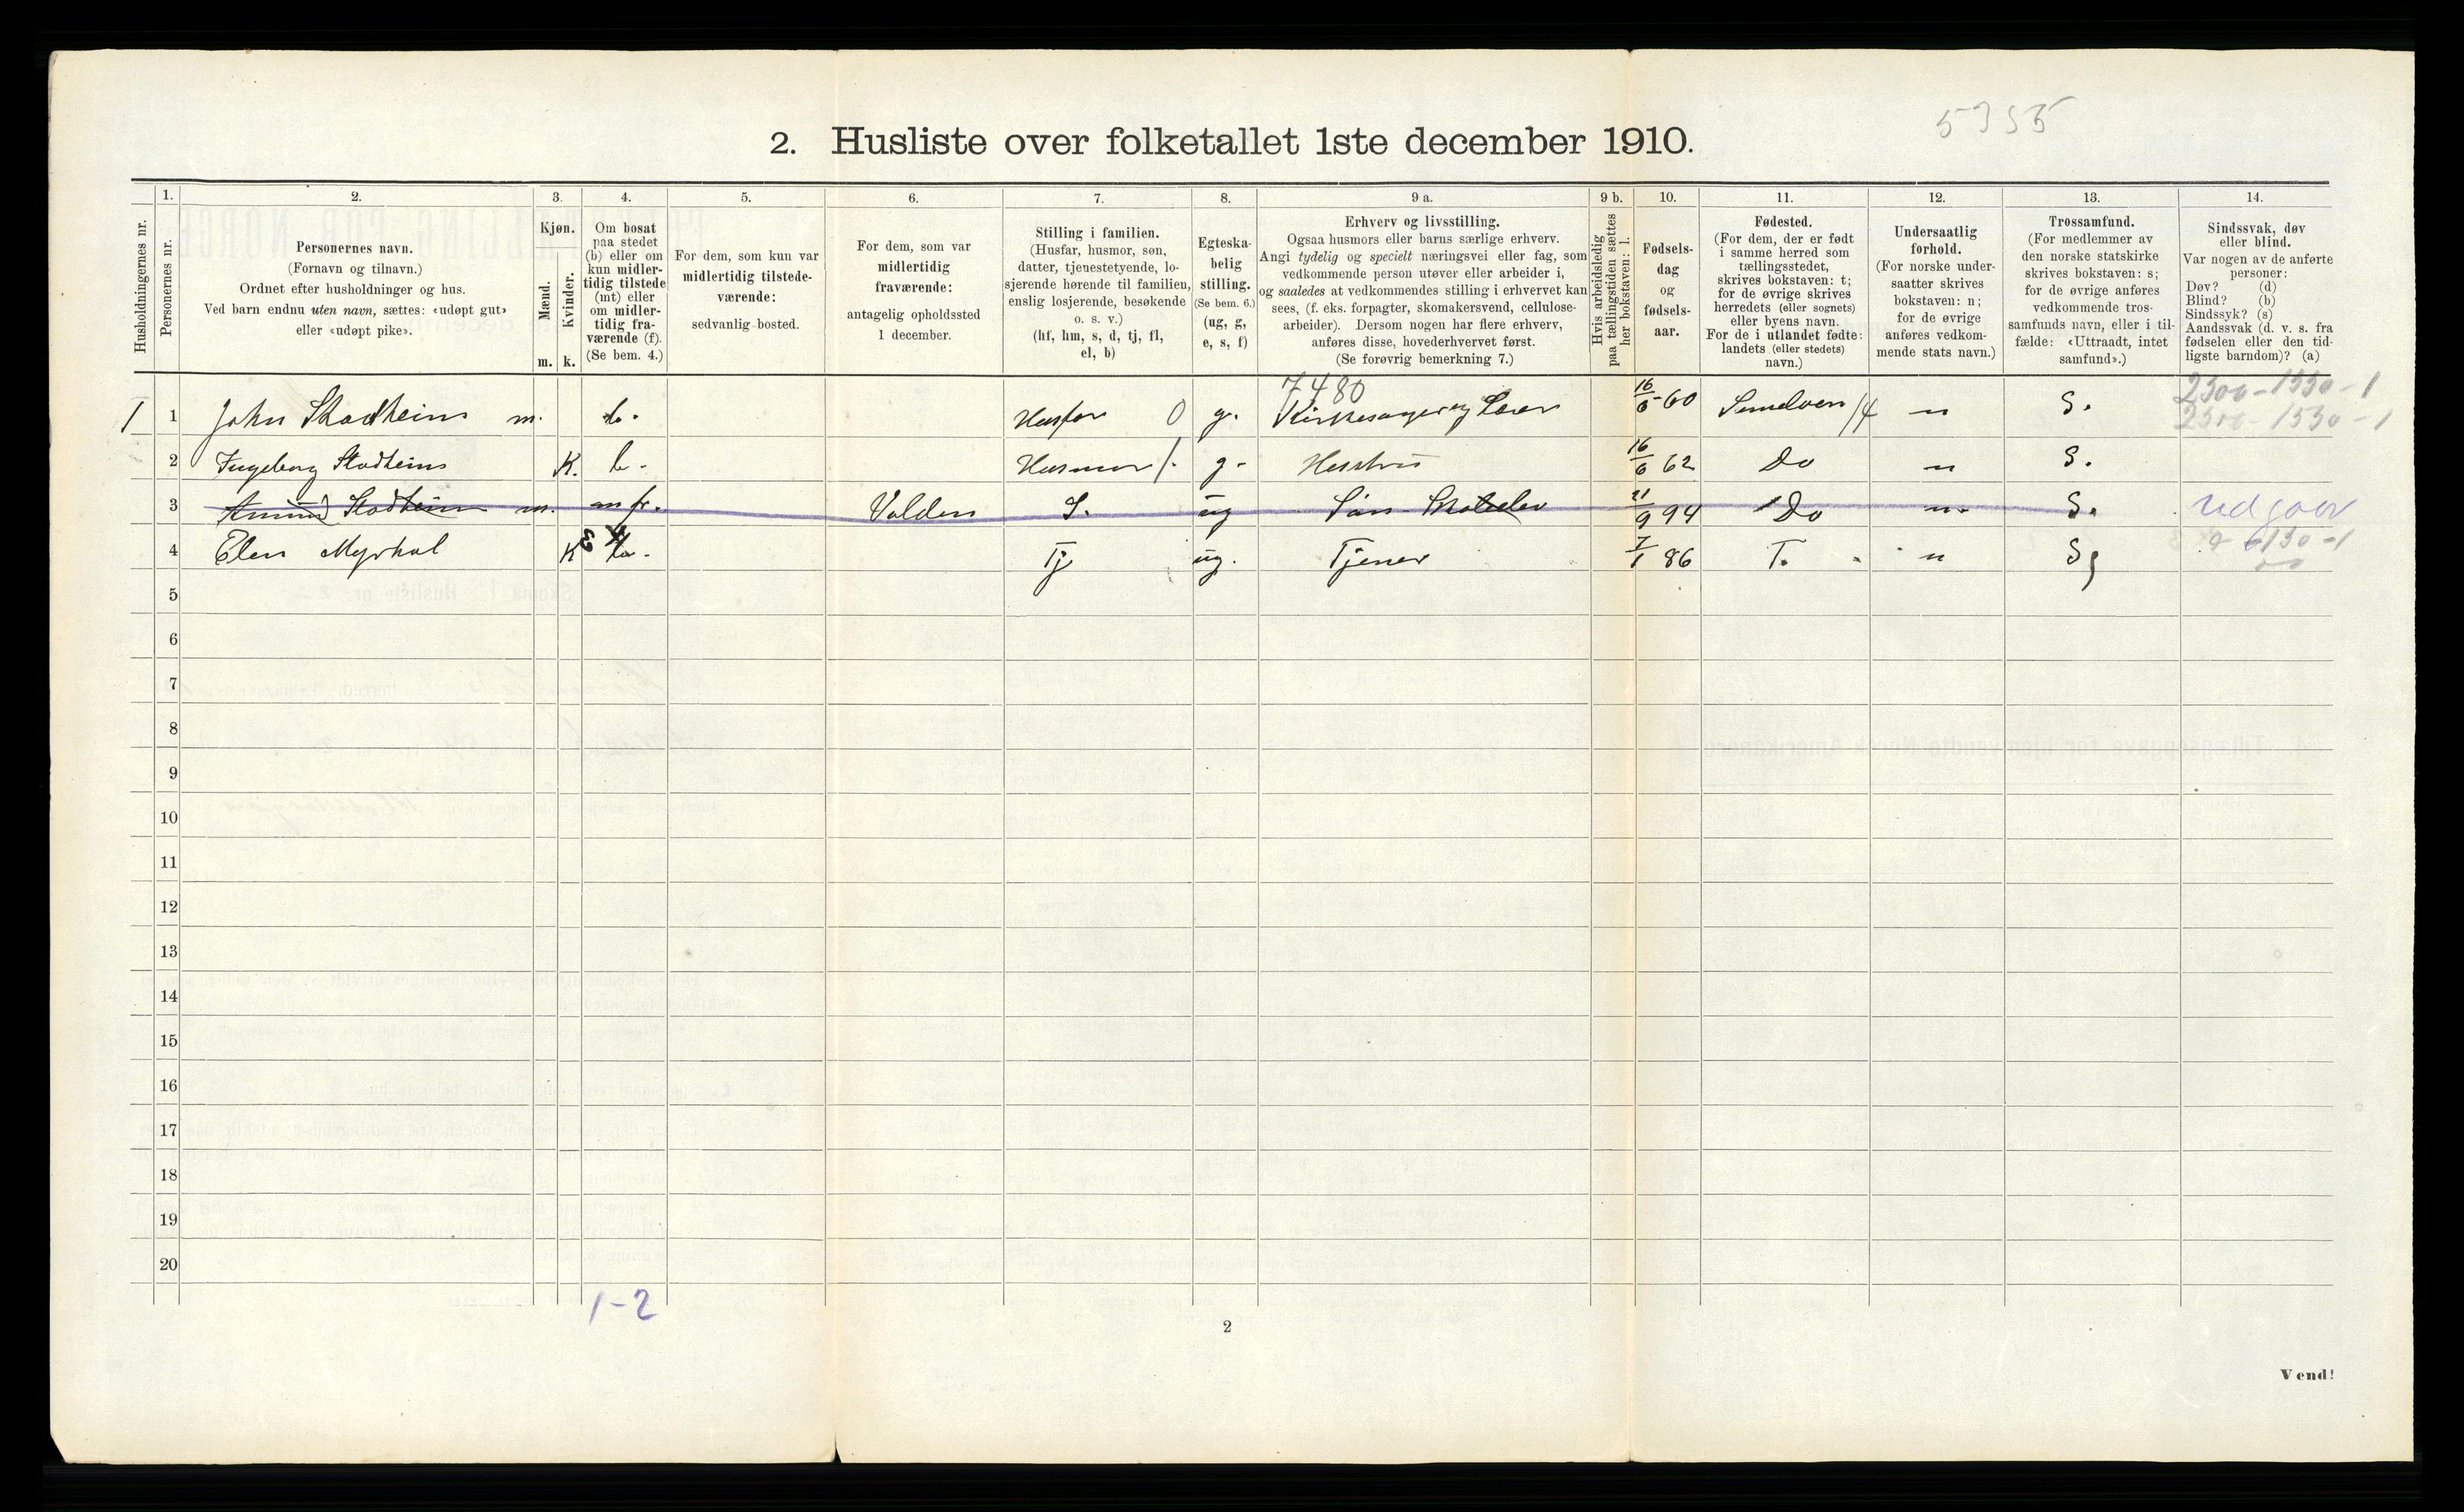 5355
2. Husliste over folketallet 1ste december 1910.
Husholdningernes nr.
1.
Personernes nr.
2.
Personernes navn.
(Fornavn og tilnavn.)
Ordnet efter husholdninger og hus.
Ved barn endnu uten navn, sættes: «udøpt gut»
eller «udøpt pike».
3.
Kjøn.
Mænd.
Kvinder.
m. k.
4.
Om bosat
paa stedet
(b) eller om
kun midler-
tidig tilstede
(mt) eller
om midler-
tidig fra-
værende (f).
(Se bem. 4.)
5.
For dem, som kun var
midlertidig tilstede-
værende:
sedvanlig bosted.
6.
For dem, som var
midlertidig
fraværende:
antagelig opholdssted
1 december.
7.
Stilling i familien.
(Husfar, husmor, søn,
datter, tjenestetyende, lo-
sjerende hørende til familien,
enslig losjerende, besøkende
o. s. v.)
(hf, hm, s, d, tj, fl,
el, b)
8.
Egteska-
belig
stilling.
(Se bem. 6.)
(ug, g,
e, s, f)
9 a.
Erhverv og livsstilling.
Ogsaa husmors eller barns særlige erhverv.
Angi tydelig og specielt næringsvei eller fag, som
vedkommende person utøver eller arbeider i,
og saaledes at vedkommendes stilling i erhvervet kan
sees, (f. eks. forpagter, skomakersvend, cellulose-
arbeider). Dersom nogen har flere erhverv,
anføres disse, hovederhvervet først.
(Se forøvrig bemerkning 7.)
9 b.
Hvis arbeidsledig
paa tællingstiden sættes
her bokstaven: l.
10.
Fødsels-
dag
og
fødsels-
aar.
11.
Fødested.
(For dem, der er født
i samme herred som
tællingsstedet,
skrives bokstaven: t;
for de øvrige skrives
herredets (eller sognets)
eller byens navn.
For de i utlandet fødte:
landets (eller stedets)
navn.)
12.
Undersaatlig
forhold.
(For norske under-
saatter skrives
bokstaven: n;
for de øvrige
anføres vedkom-
mende stats navn.)
13.
Trossamfund.
(For medlemmer av
den norske statskirke
skrives bokstaven: s;
for de øvrige anføres
vedkommende tros-
samfunds navn, eller i til-
fælde: «Uttraadt, intet
samfund».)
14.
Sindssvak, døv
eller blind.
Var nogen av de anførte
personer:
Døv? (d)
Blind? (b)
Sindssyk? (s)
Aandssvak (d. v. s. fra
fødselen eller den tid-
ligste barndom)? (a)
7480
2300-1530-1
2300-1530-1
1 1 John Stadheim m. b. Husfar 0 g. Kirkesanger og Lærer 16/6-60 14 n S.
2 Ingeborg Stadheim K. b. Husmor 1. g. Hustru 16/6 62 Do n S.
3 Amund Stadheim m. m fr. Volden S. ug Søn Skoleelev 21/9 94 Do n. S. udgaar
4 Elen Myrhol K b. Tj ug. Tjener 7/1 86 T. n S
5
6
7
8
9
10
11
12
13
14
15
16
17
18
19
20
1-2
2
Vend!